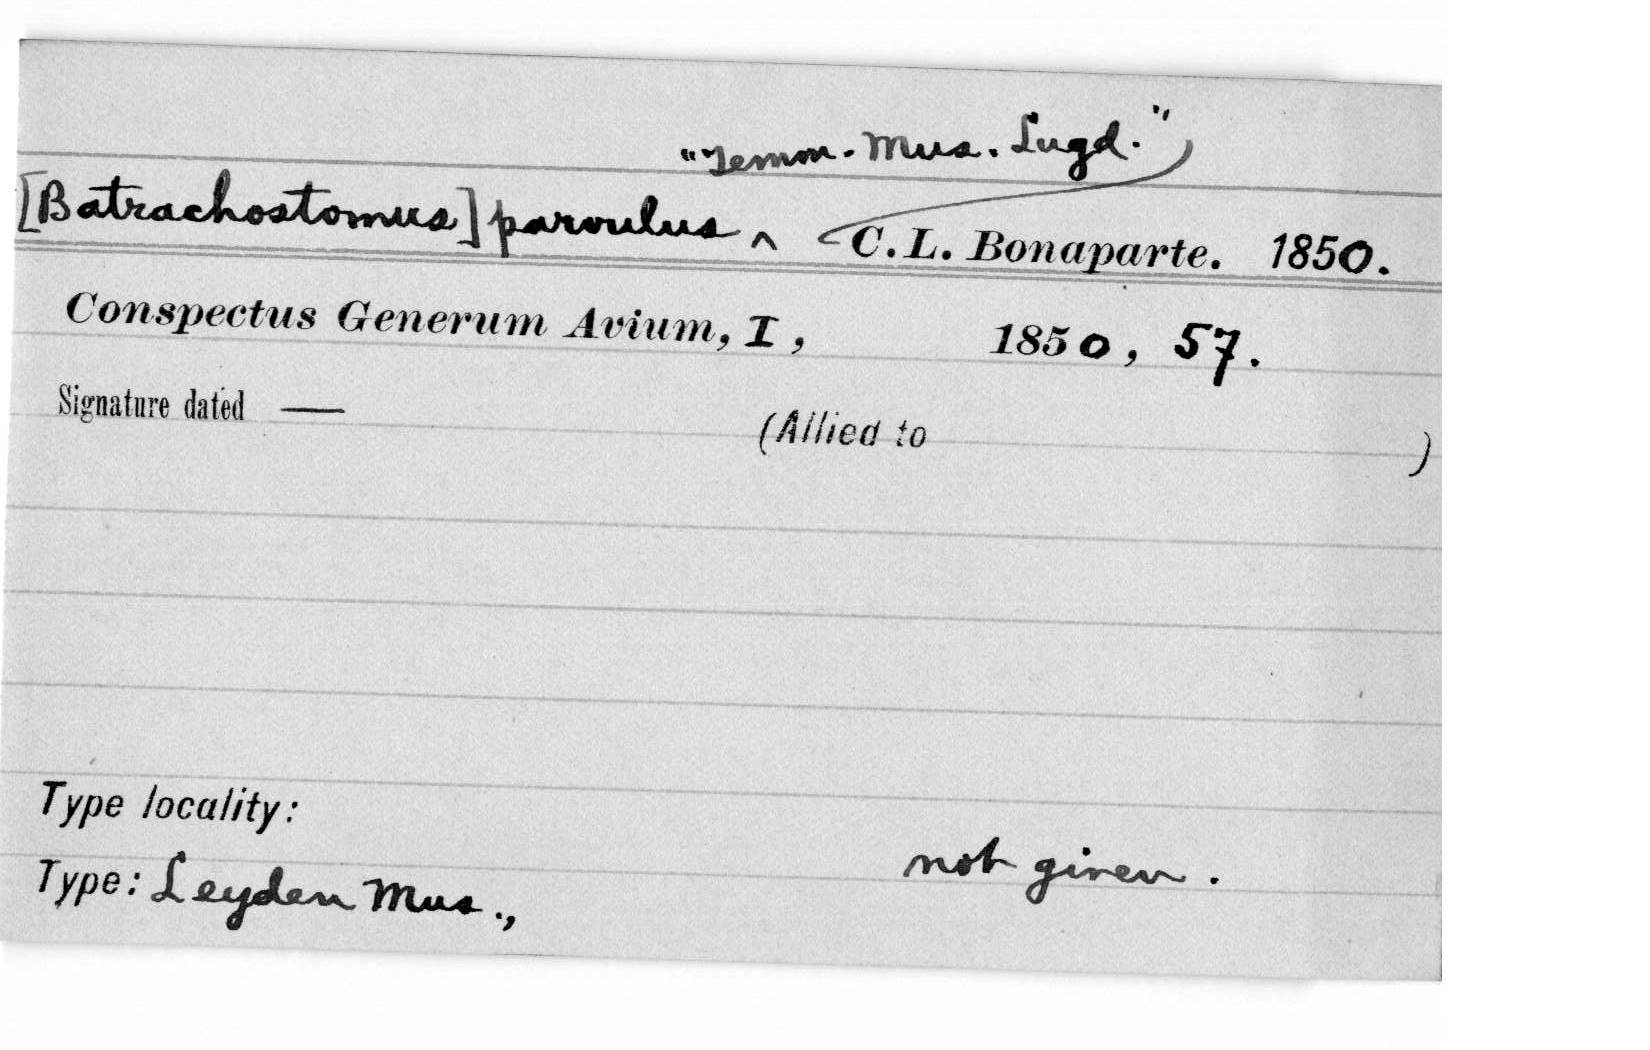 "Temm. Mus. Lugd."
[Batrachostomus] parvulus ^ C. L. Bonaparte. 1850.
Conspectus Generum Avium, I, 1850, 57.
Signature dated — (Allied to )
Type locality:
Type: Leyden Mus., not given.